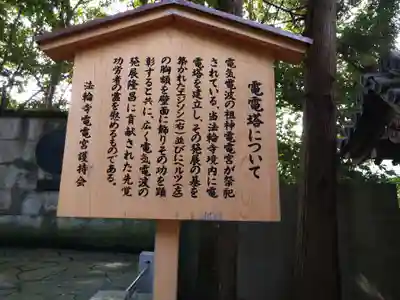 電電塔について
電気電波の祖神電電宮が祭祀
されている、当法輪寺境内に電
電塔を建立し、その発展の基を
築かれたエジソン(右)並びにヘルツ(左)
の胸額を壁面に飾りその功を顕
彰すると共に、広く電気電波の
発展隆昌に貢献された先覚
功労者の霊を慰めるものである。
法輪寺電電宮護持会